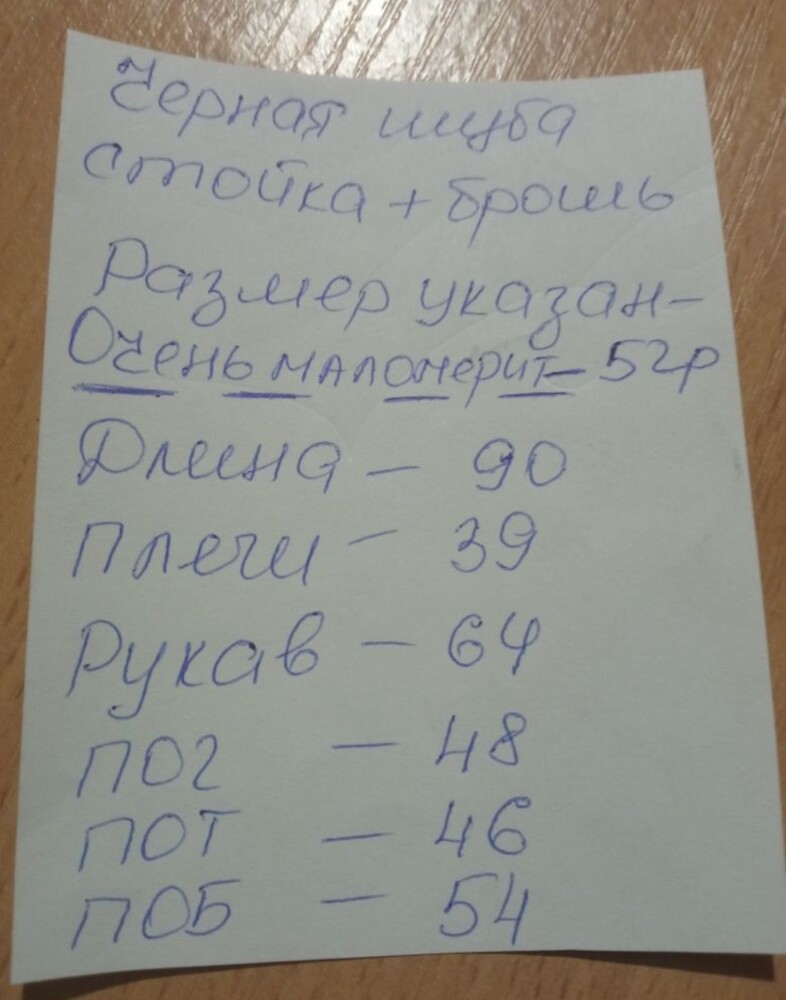 Черная шуба
стойка + брошь
Размер указан -
Очень маломерит - 52р
Длина - 90
Плечи - 39
Рукав - 64
ПОГ - 48
ПОТ - 46
ПОБ - 54